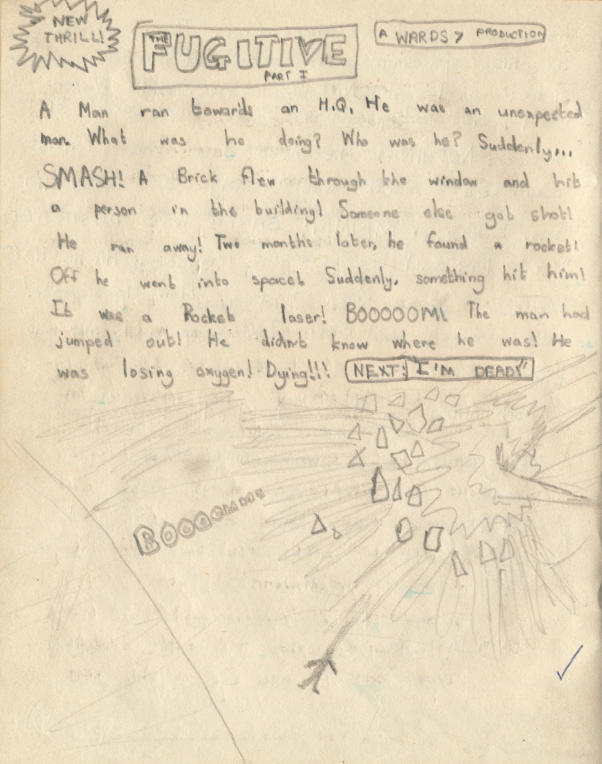 NEW
THRILL!
THE
FUGITIVE
PART I
A WARDS 7 PRODUCTION
A Man ran towards an H.Q. He was an unexpected
man. What was he doing? Who was he? Suddenly...
SMASH! A Brick flew through the window and hit
a person in the building! Someone else got shot!
He ran away! Two months later, he found a rocket!
Off he went into space! Suddenly, something hit him!
It was a Rocket laser! BOOOOOM! The man had
jumped out! He didn't know where he was! He
was losing oxygen! Dying!!! NEXT: I'M DEAD!"